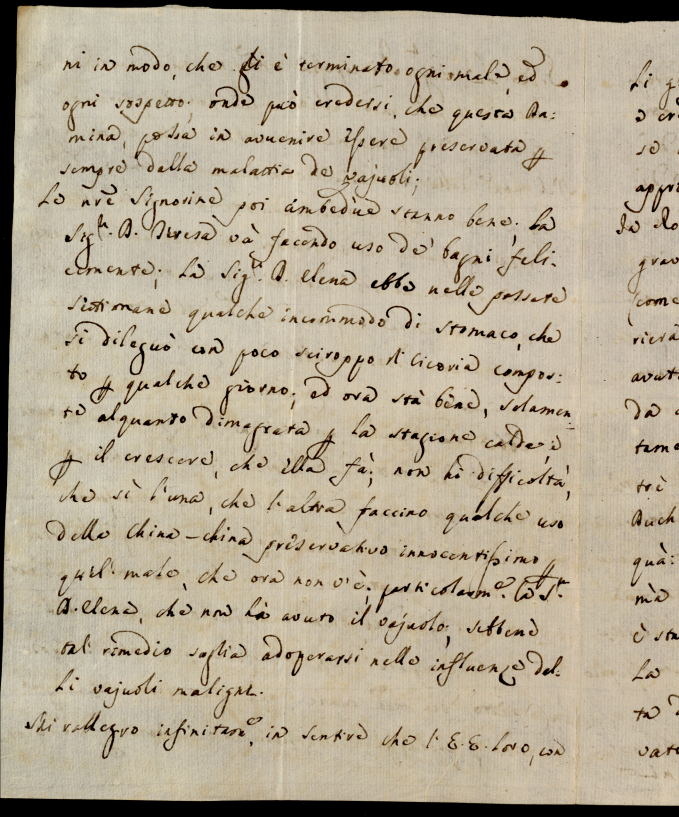 ni in modo, che gli è terminato ogni male, ed
ogni sospetto; onde può credersi, che questa Ba:
mina, possa in avvenire essere preservata ꝑ
sempre dalla malattia de vajuoli;
Le nrē Signorine poi ambedue stanno bene. La
Sig.ra D. Teresa và facendo uso de' bagni feli-
cemente; La Sig.ra D. Elena ebbe nelle passate
settimane qualche incommodo di stomaco, che
si dileguò con poco sciroppo di Cicoria compos:
to ꝑ qualche giorno; ed ora stà bene, solamen=
te alquanto dimagrata ꝑ la stagione calda, è
ꝑ il crescere, che Ella fà; non hò difficoltà,
che sì l'una, che l'altra faccino qualche uso
della China-china preservativo innocentissimo ꝑ
quel male, che ora non v'è; particolarm.e la S.ra
D. Elena, che non hà avuto il vajuolo; sebbene
tal rimedio soglia adoperarsi nelle influenze del-
li vajuoli maligni.
Mi rallegro infinitam.e, in sentire che l'E.E. Loro, con
Li
se
appre
da
grav
come
riera
avut
Da
tame
trè
Buch
quà:
mà
è sta
La
ta
vate